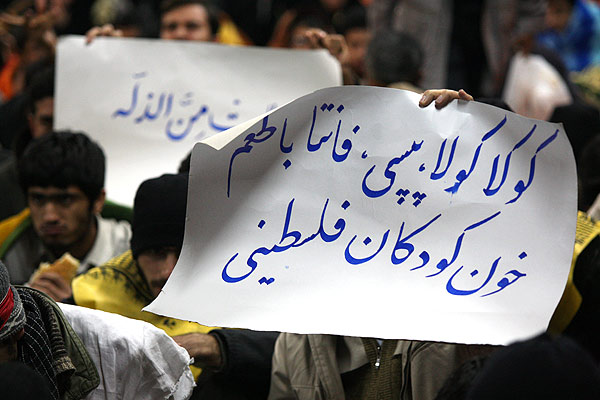 منّ الذله
کولا کولا، پپسی، فانتا با طعم
خون کودکان فلسطینی